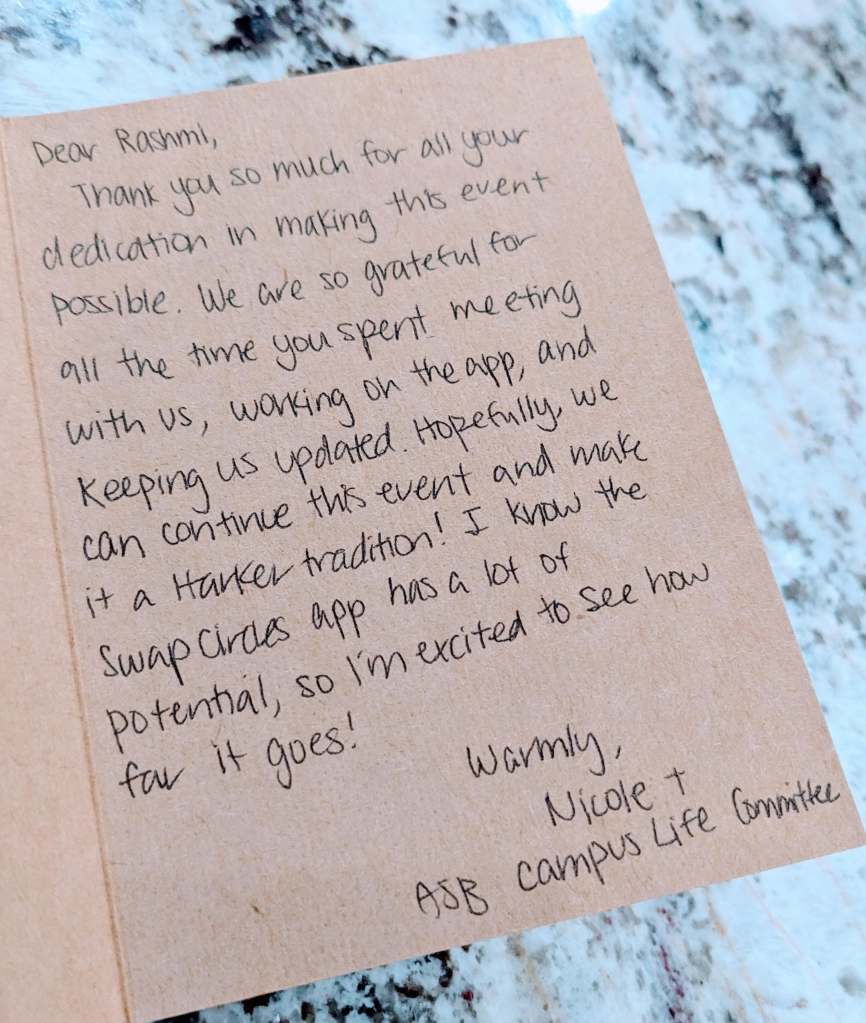 Dear Rashmi,
Thank you so much for all your
dedication in making this event
possible. We are so grateful for
all the time you spent meeting
with us, working on the app, and
keeping us updated. Hopefully, we
can continue this event and make
it a Harker tradition! I know the
Swap Circles app has a lot of
potential, so I'm excited to see how
far it goes!
Warmly,
Nicole +
ASB Campus Life Committee